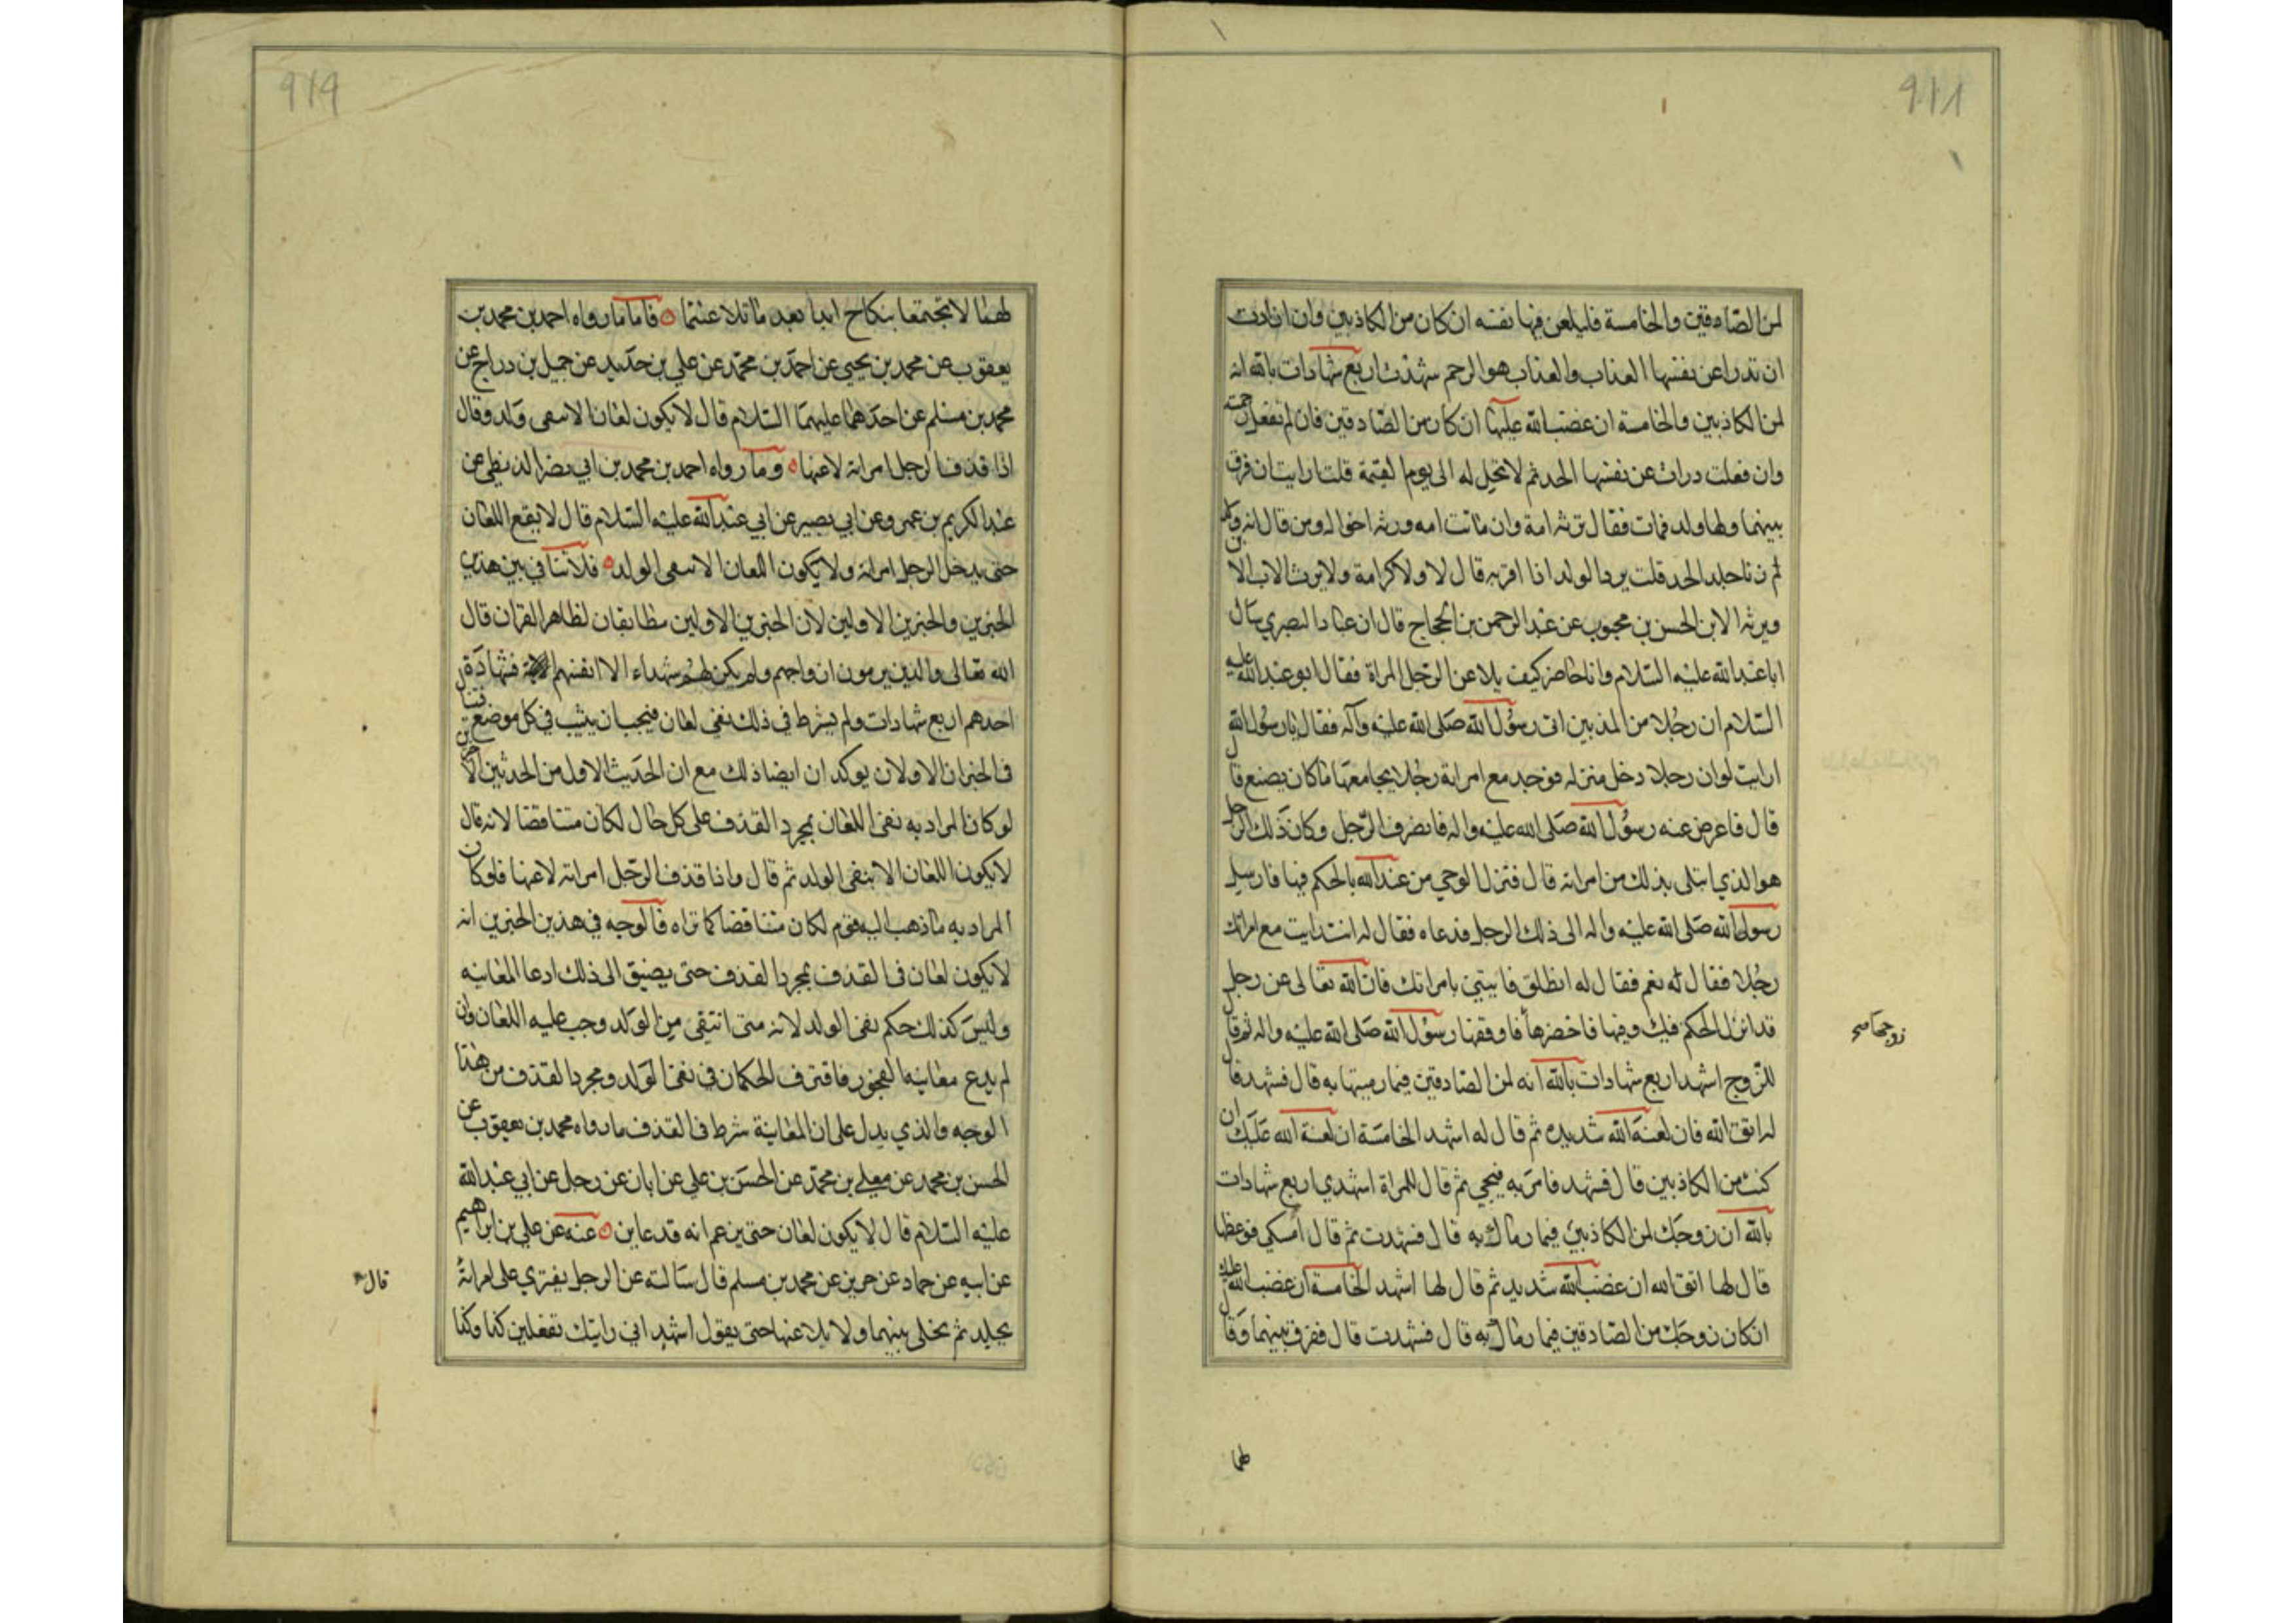 ٩١٨
لمن الصادقين والخامسة فليلعن فيها نفسه ان كان من الكاذبين وان ارادت
ان تدرا عن نفسها العذاب والعذاب هو الرجم شهدت اربع شهادات بالله انه
لمن الكاذبين والخامسة ان غضب الله عليها ان كان من الصادقين فان لم تفعل رجمت
وان فعلت درات عن نفسها الحد ثم لا تحل له الى يوم القيمة قلت ارايت ان فرق
بينهما ولها ولد فمات فقال ترثه امه وان ماتت امه ورثه اخواله ومن قال انه ولد
زنا جلد الحد قلت يرد الولد اذا اقر به قال لا ولا كرامة ولا يرث الاب الابن
ويرثه الابن الحسن بن محبوب عن عبد الرحمن بن الحجاج قال ان عبادا البصري سال
ابا عبد الله عليه السلام وانا حاضر كيف يلاعن الرجل المراة فقال ابو عبد الله عليه
السلام ان رجلا من المذنبين اتى رسول الله صلى الله عليه وآله فقال يا رسول الله
ارايت لو ان رجلا دخل منزله فوجد مع امراته رجلا يجامعها ما كان يصنع قال
قال فاعرض عنه رسول الله صلى الله عليه واله فانصرف الرجل وكان ذلك الرجل
هو الذي ابتلى بذلك من امراته قال فنزل الوحي من عند الله بالحكم فيها فارسل
رسول الله صلى الله عليه واله الى ذلك الرجل فدعاه فقال له انت رايت مع امراتك
رجلا فقال له نعم فقال له انطلق فايتني بامراتك فان الله تعالى عن رجل
قد انزل الحكم فيك وفيها فاحضرها فاوقفها رسول الله صلى الله عليه واله ثم قال
زوجها صح
للزوج اشهد اربع شهادات بالله انه لمن الصادقين فيما رميتها به قال فشهد قال
له اتق الله فان لعنة الله شديده ثم قال له اشهد الخامسة ان لعنة الله عليك ان
كنت من الكاذبين قال فشهد فامر به فنحي ثم قال للمراة اشهدي اربع شهادات
بالله ان زوجك لمن الكاذبين فيما رماك به قال فشهدت ثم قال امسكي فوعظها
قال لها اتق الله ان غضب الله شديد ثم قال لها اشهد الخامسة ان غضب الله عليك
ان كان زوجك من الصادقين فيما رماك به قال فشهدت قال ففرق بينهما وقال
لهما
٩١٩
لهما لا تجتمعا بنكاح ابدا بعد ما تلاعنتما ه فاما ما رواه احمد بن محمد بن
يعقوب عن محمد بن يحيى عن احمد بن محمد عن علي بن حديد عن جميل بن دراج عن
محمد بن مسلم عن احدهما عليهما السلام قال لا يكون لعان الا بنفى ولد وقال
اذا قذف الرجل امراته لاعنها ه وما رواه احمد بن محمد بن ابي نصر البزنطي عن
عبد الكريم بن عمرو عن ابي بصير عن ابي عبد الله عليه السلام قال لا يقع اللعان
حتى يدخل الرجل امراته ولا يكون اللعان الا بنفى الولد ه فلا تنافي بين هذين
الخبرين والخبرين الاولين لان الخبرين الاولين مطابقان لظاهر القران قال
الله تعالى والذين يرمون ازواجهم ولم يكن لهم شهداء الا انفسهم فشهادة
احدهم اربع شهادات ولم يشرط في ذلك نفي لعان فيجب ان يثبت في كل موضع
فالخبران الاولان يوكدان ايضا ذلك مع ان الحديث الاول من الحدثين الاخيرين
لو كان المراد به نفى اللعان بمجرد القذف على كل حال لكان متناقضا لانه قال
لا يكون اللعان الا بنفى الولد ثم قال واذا قذف الرجل امراته لاعنها فلو كان
المراد به ما ذهب اليه قوم لكان متناقضا كما تراه فالوجه في هذين الخبرين انه
لا يكون لعان في القذف بمجرد القذف حتى يضيق الى ذلك ادعا المعاينه
وليس كذلك حكم نفى الولد لانه متى انتقي من الولد وجب عليه اللعان وان
لم يدع معاينه الفجور فافترق الحكمان في نفى الولد ومجرد القذف من هذا
الوجه والذي يدل على ان المعاينة شرط في القذف ما رواه محمد بن يعقوب عن
الحسن بن محمد عن معلى بن محمد عن الحسن بن علي عن ابان عن رجل عن ابي عبد الله
عليه السلام قال لا يكون لعان حتى يزعم انه قد عاين ه عنه عن علي بن ابراهيم
عن ابيه عن حماد عن حريز عن محمد بن مسلم قال سالته عن الرجل يفتري على امراته
قال
يجلد ثم يخلى بينهما ولا يلاعنها حتى يقول اشهد اني رايتك تفعلين كذا وكذا